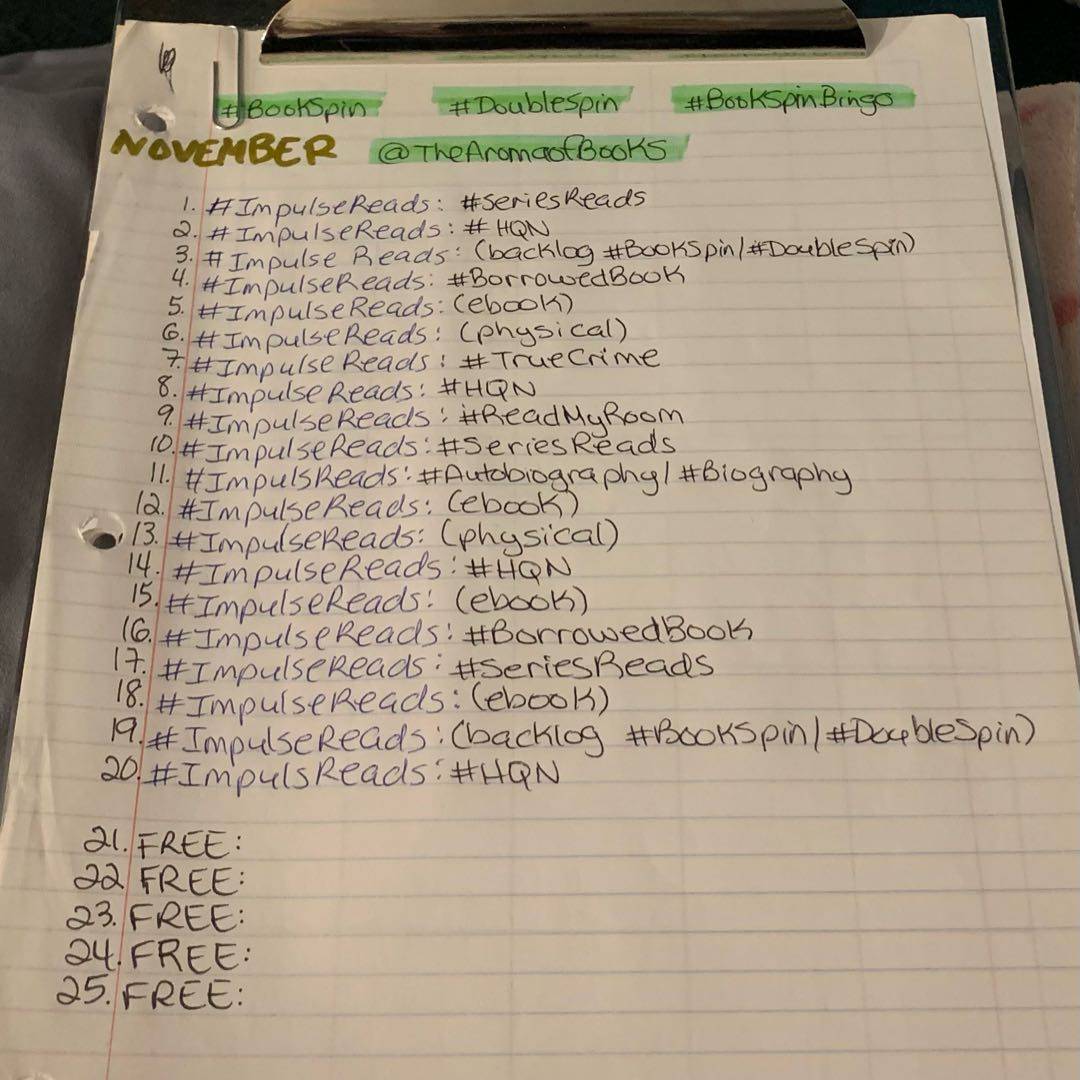 #BookSpin #DoubleSpin #BookSpinBingo
NOVEMBER @TheAromaofBooks
1. #ImpulseReads: #SeriesReads
2. #ImpulseReads: #HQN
3. #Impulse Reads: (backlog #BookSpin/#DoubleSpin)
4. #ImpulseReads: #BorrowedBook
5. #ImpulseReads: (ebook)
6. #ImpulseReads: (physical)
7. #ImpulseReads: #TrueCrime
8. #ImpulseReads: #HQN
9. #ImpulseReads: #ReadMyRoom
10. #ImpulseReads: #SeriesReads
11. #ImpulsReads: #Autobiography/#Biography
12. #ImpulseReads: (ebook)
13. #ImpulseReads: (physical)
14. #ImpulseReads: #HQN
15. #ImpulseReads: (ebook)
16. #ImpulseReads: #BorrowedBook
17. #ImpulseReads: #SeriesReads
18. #ImpulseReads: (ebook)
19. #ImpulseReads: (backlog #BookSpin/#DoubleSpin)
20. #ImpulsReads: #HQN
21. FREE:
22 FREE:
23. FREE:
24. FREE:
25. FREE: